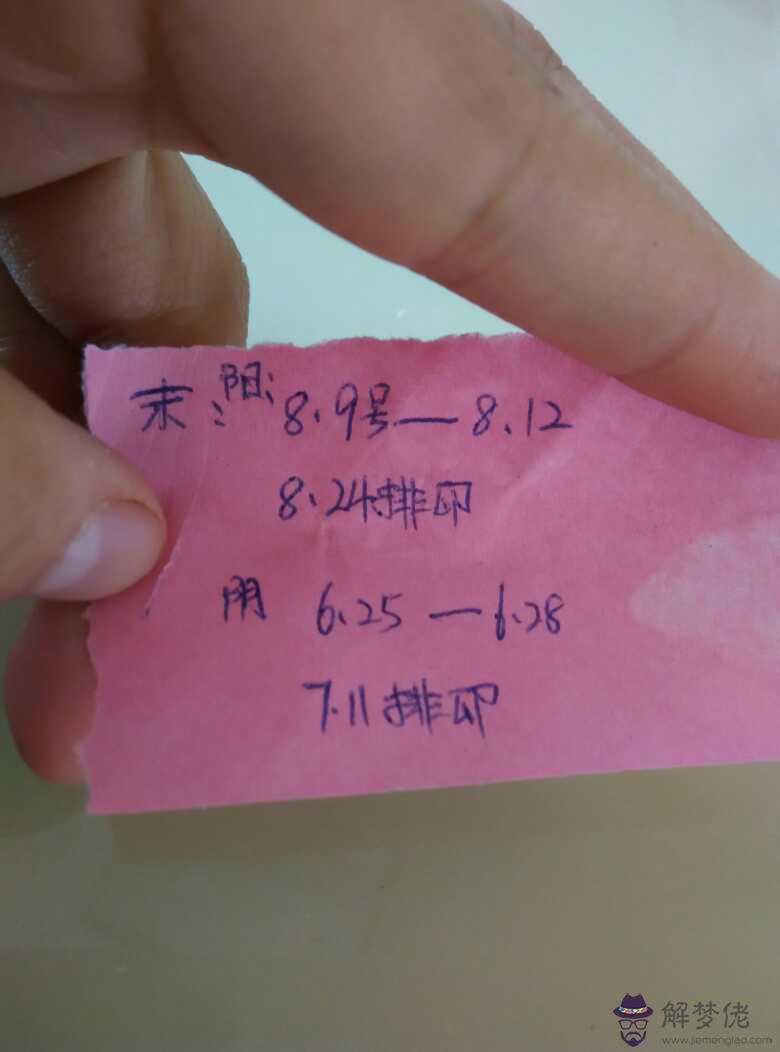 末：阳：8.9号—8.12
8.24排卵
阴 6.25—6.28
7.11排卵
解梦佬
www.jiemenglao.com